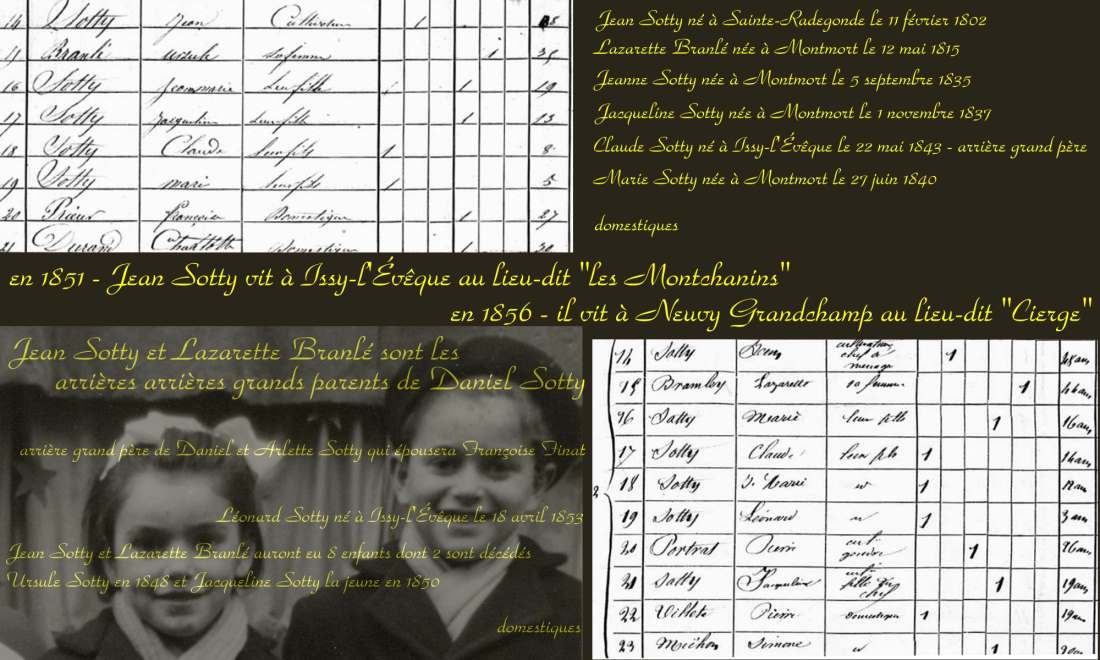 14 Sotty Jean Cultivateur 1
15 Branlé ursule sa femme 1 35
16 Sotty jeanmarie leur fille 1 1 19
17 Sotty jacqueline leur fille 1 13
18 Sotty Claude leur fils 1 8
19 Sotty marie leur fils 1 5
20 françoise Domestique 1 27
21 Durand Charlotte Domestique 1
Jean Sotty né à Sainte-Radegonde le 11 février 1802
Lazarette Branlé née à Montmort le 12 mai 1815
Jeanne Sotty née à Montmort le 5 septembre 1835
Jacqueline Sotty née à Montmort le 1 novembre 1837
Claude Sotty né à Issy-l'Évêque le 22 mai 1843 - arrière grand père
Marie Sotty née à Montmort le 27 juin 1840
domestiques
en 1851 - Jean Sotty vit à Issy-l'Évêque au lieu-dit "les Montchanins"
en 1856 - il vit à Neuvy Grandchamp au lieu-dit "Cierge"
Jean Sotty et Lazarette Branlé sont les
arrières arrières grands parents de Daniel Sotty
arrière grand père de Daniel et Arlette Sotty qui épousera Françoise Finat
Léonard Sotty né à Issy-l'Évêque le 18 avril 1853
Jean Sotty et Lazarette Branlé auront eu 8 enfants dont 2 sont décédés
Ursule Sotty en 1848 et Jacqueline Sotty la jeune en 1850
domestiques
14 Sotty Jean cultivateur chef de menage 1
15 Lazarette sa femme 1
16 Sotty Marie leur fille 1 16 ans
17 Sotty Claude leur fils 1 14 ans
18 Sotty J. Marie id 1
19 Sotty Léonard id 1 3 ans
20 Portrat 1 26 ans
21 Sotty Jacqueline 1 19 ans
22 Pierre domestique 1 19 ans
23 Michon Simone id 1 20 ans